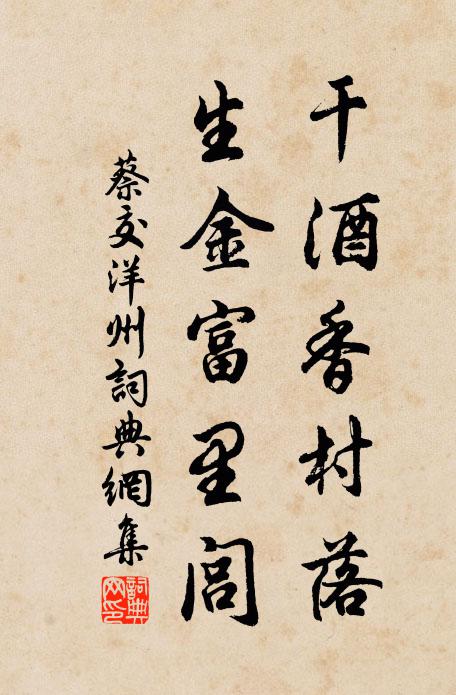 干酒香村落
生金富里闾
蔡交洋州詞典網集
詞典网印